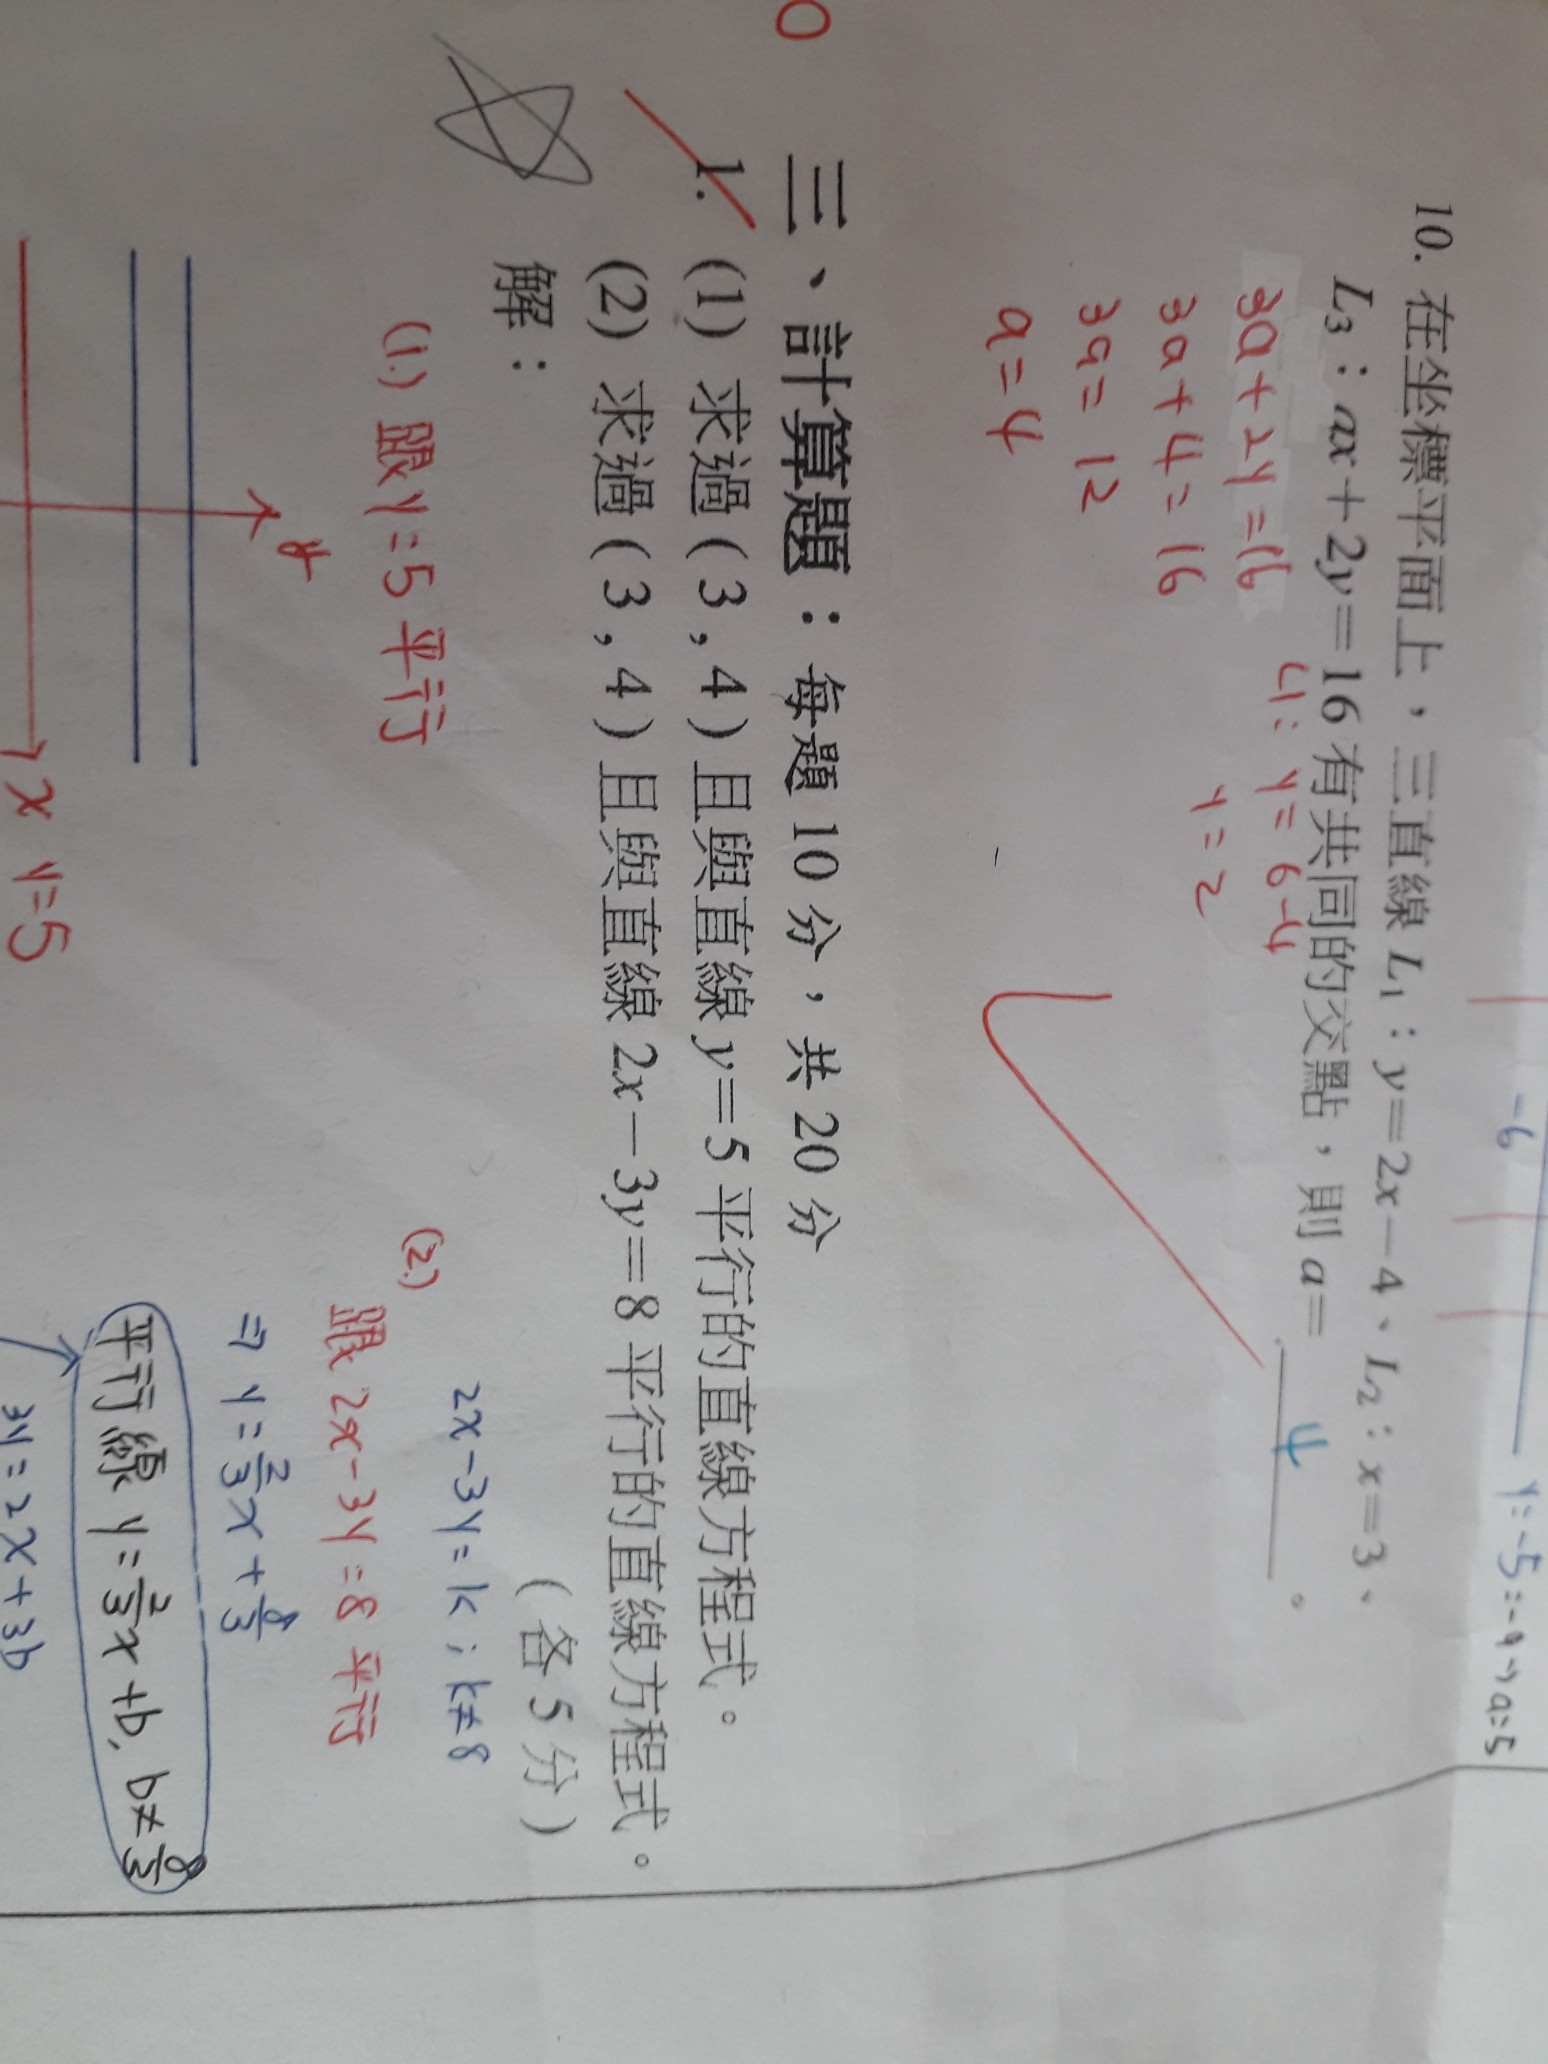 -6
y=-5=-9→a=5
10. 在坐標平面上，三直線 L₁：y＝2x－4、L₂：x＝3、
L₃：ax＋2y＝16 有共同的交點，則 a＝ 4 。
3a+2y=16
L1: y=6-4
3a+4=16
y=2
3a=12
a=4
三、計算題：每題 10 分，共 20 分
1. (1) 求過（3 , 4）且與直線 y＝5 平行的直線方程式。
(2) 求過（3 , 4）且與直線 2x－3y＝8 平行的直線方程式。
（各 5 分）
解：
(1.) 跟 y=5 平行
y
x y=5
(2.)
2x-3y=k ; k≠8
跟 2x-3y=8 平行
⇒ y=2/3x+8/3
平行線 y=2/3x+b, b≠8/3
3y=2x+3b